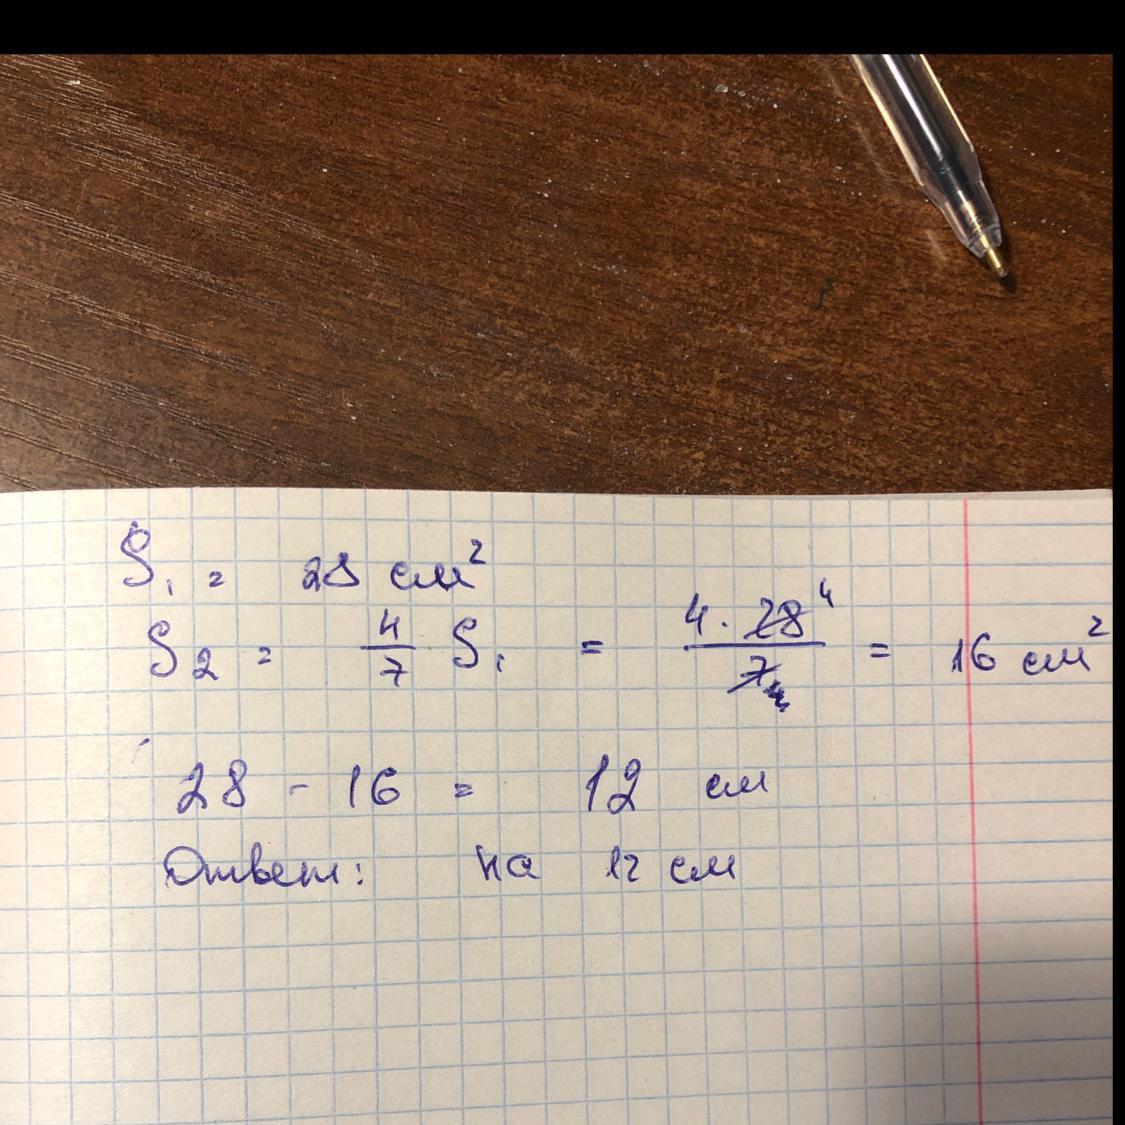 S₁ = 28 см²
S₂ = 4/7 S₁ = 4 · 28⁴/7 = 16 см²
28 - 16 = 12 см
Ответ: на 12 см